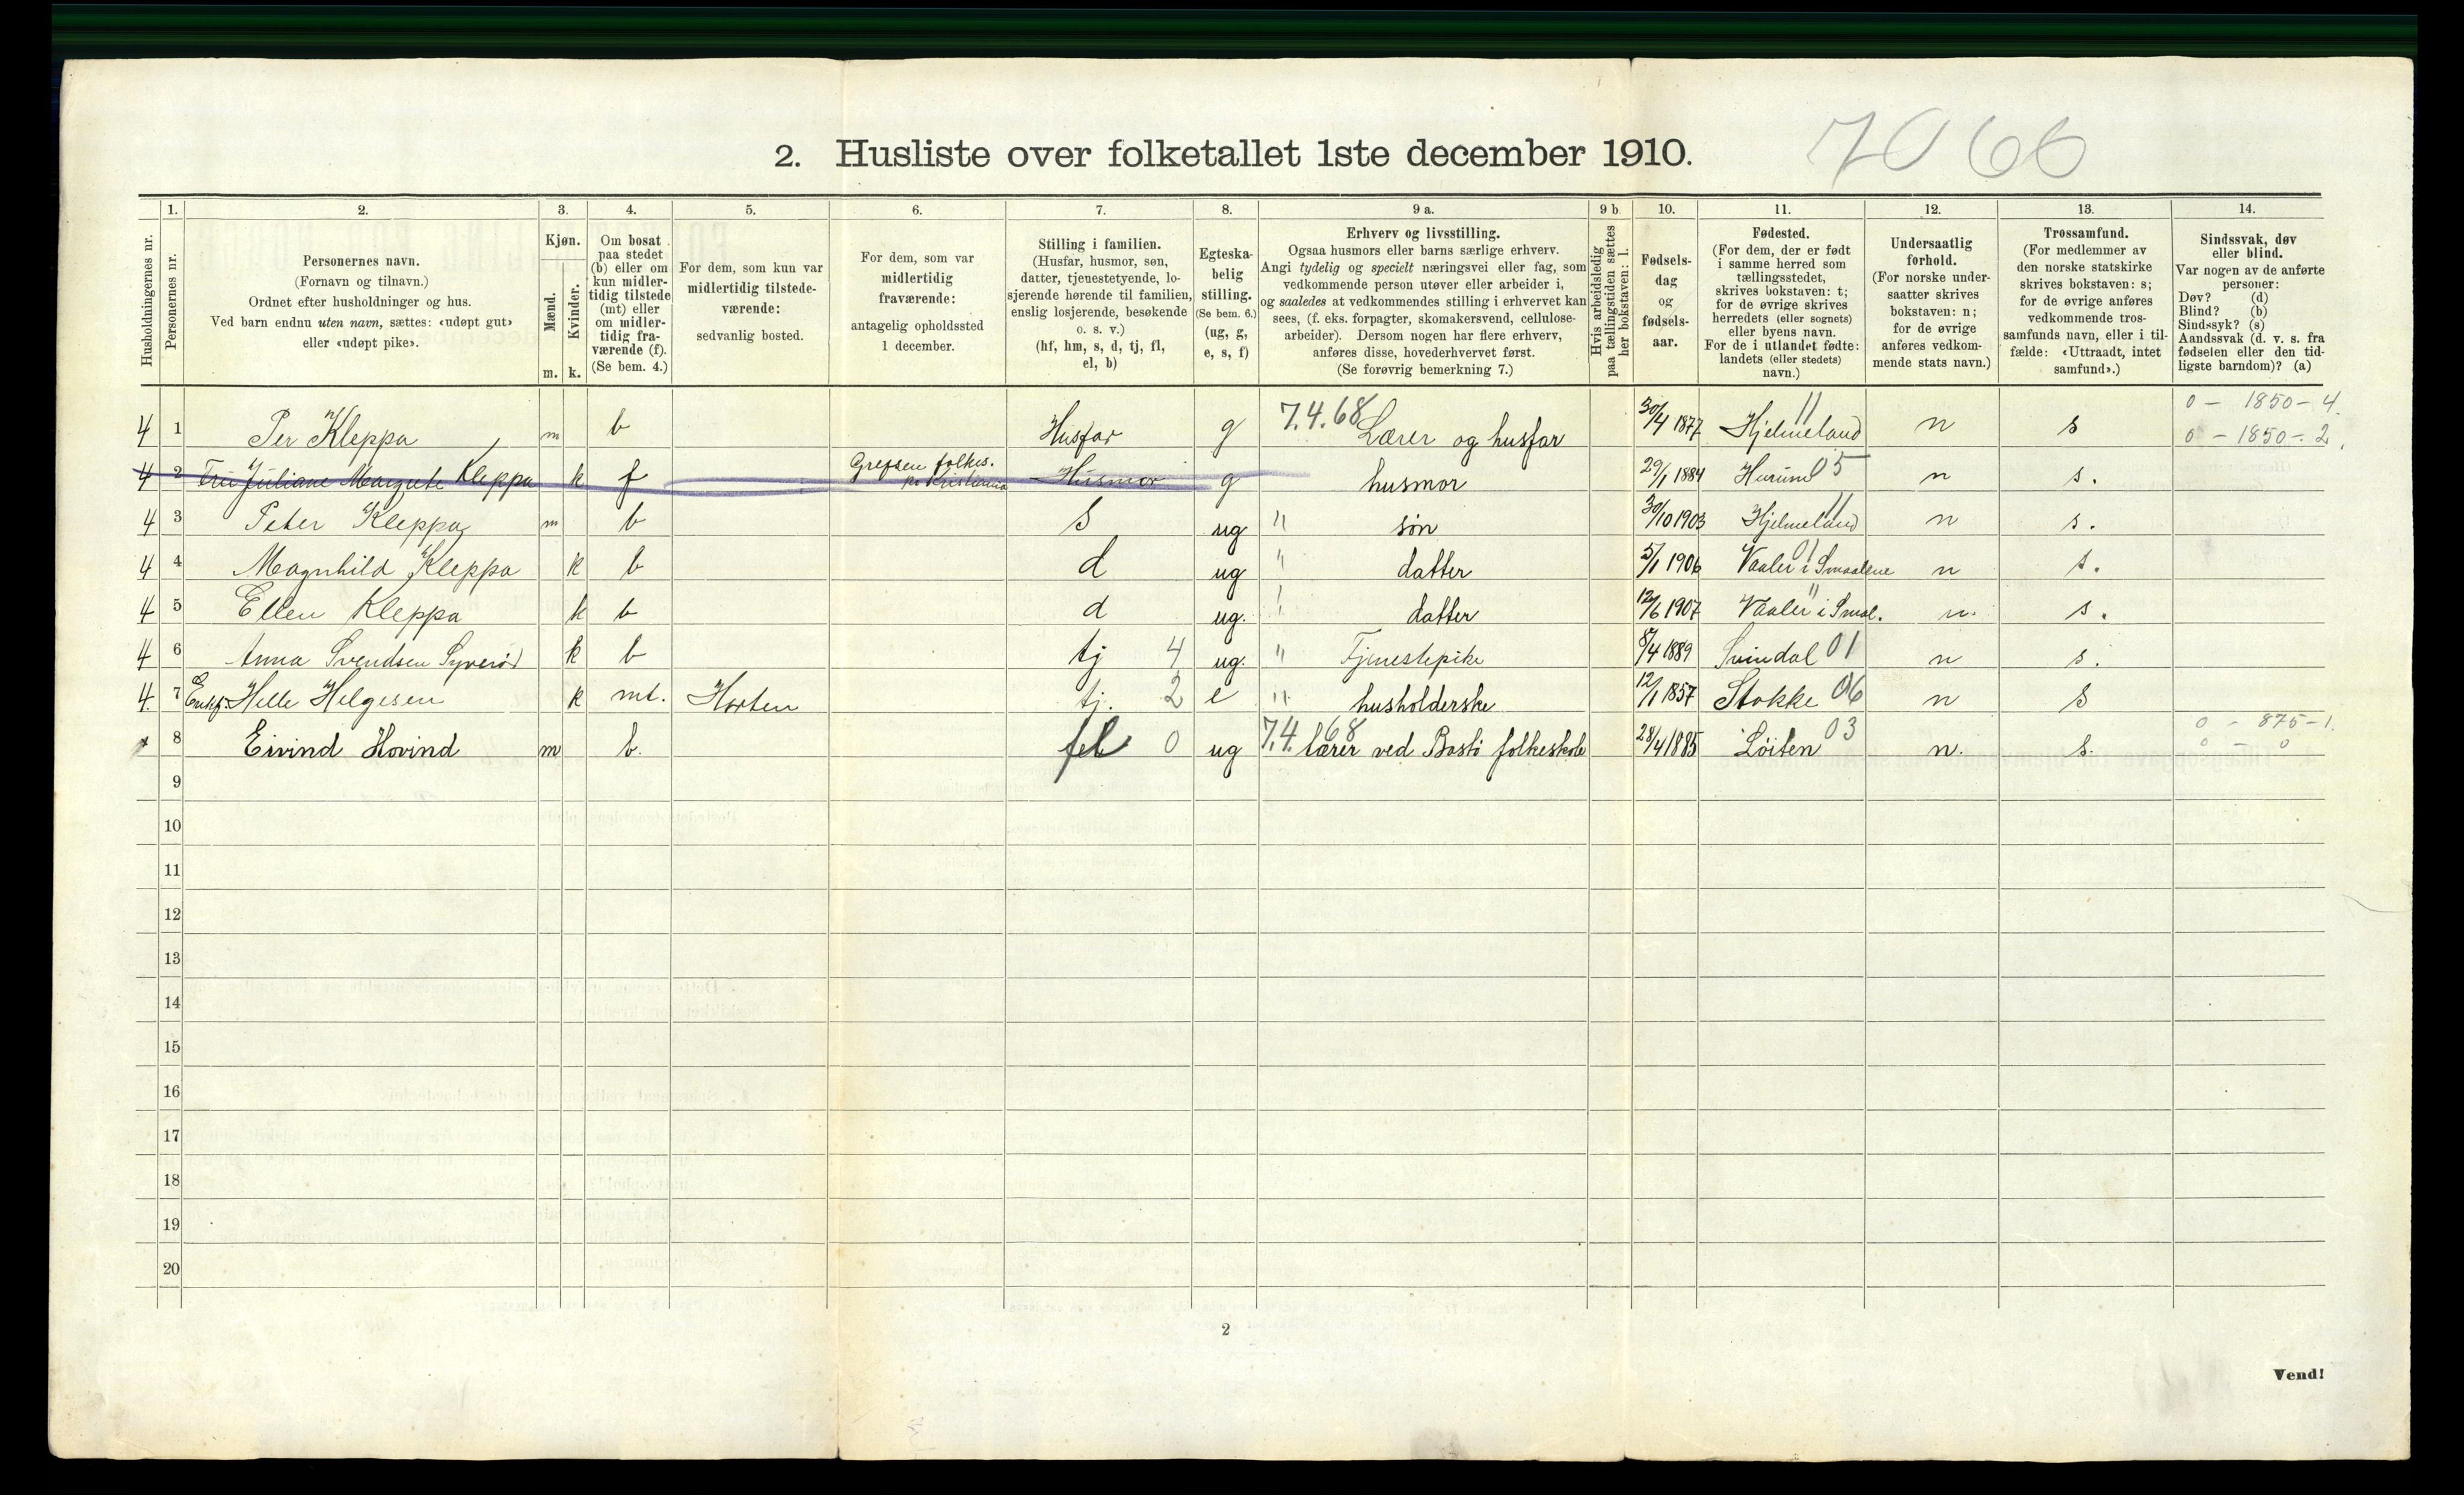 2. Husliste over folketallet 1ste december 1910.
7066
Husholdningernes nr.
1.
Personernes nr.
2.
Personernes navn.
(Fornavn og tilnavn.)
Ordnet efter husholdninger og hus.
Ved barn endnu uten navn, sættes: «udøpt gut»
eller «udøpt pike».
3.
Kjøn.
Mænd.
Kvinder.
m. k.
4.
Om bosat
paa stedet
(b) eller om
kun midler-
tidig tilstede
(mt) eller
om midler-
tidig fra-
værende (f).
(Se bem. 4.)
5.
For dem, som kun var
midlertidig tilstede-
værende:
sedvanlig bosted.
6.
For dem, som var
midlertidig
fraværende:
antagelig opholdssted
1 december.
7.
Stilling i familien.
(Husfar, husmor, søn,
datter, tjenestetyende, lo-
sjerende hørende til familien,
enslig losjerende, besøkende
o. s. v.)
(hf, hm, s, d, tj, fl,
el, b)
8.
Egteska-
belig
stilling.
(Se bem. 6.)
(ug, g,
e, s, f)
9 a.
Erhverv og livsstilling.
Ogsaa husmors eller barns særlige erhverv.
Angi tydelig og specielt næringsvei eller fag, som
vedkommende person utøver eller arbeider i,
og saaledes at vedkommendes stilling i erhvervet kan
sees, (f. eks. forpagter, skomakersvend, cellulose-
arbeider). Dersom nogen har flere erhverv,
anføres disse, hovederhvervet først.
(Se forøvrig bemerkning 7.)
9 b
Hvis arbeidsledig
paa tællingstiden sættes
her bokstaven: l.
10.
Fødsels-
dag
og
fødsels-
aar.
11.
Fødested.
(For dem, der er født
i samme herred som
tællingsstedet,
skrives bokstaven: t;
for de øvrige skrives
herredets (eller sognets)
eller byens navn.
For de i utlandet fødte:
landets (eller stedets)
navn.)
12.
Undersaatlig
forhold.
(For norske under-
saatter skrives
bokstaven: n;
for de øvrige
anføres vedkom-
mende stats navn.)
13.
Trossamfund.
(For medlemmer av
den norske statskirke
skrives bokstaven: s;
for de øvrige anføres
vedkommende tros-
samfunds navn, eller i til-
fælde: «Uttraadt, intet
samfund».)
14.
Sindssvak, døv
eller blind.
Var nogen av de anførte
personer:
Døv? (d)
Blind? (b)
Sindssyk? (s)
Aandssvak (d. v. s. fra
fødselen eller den tid-
ligste barndom)? (a)
4 1 Per Kleppa m b Husfar g 7.4.68 Lærer og husfar 30/4 1877 Hjelmeland 11 n s 0 - 1850 - 4.
0 - 1850 - 2.
4 2 Fru Juliane Margrete Kleppa k f Grefsen folkes. Husmor g husmor 29/1 1884 05 n s.
4 3 Peter Kleppa m b S ug " søn 30/10 1903 Hjelmeland 11 n s.
4 4 Magnhild Kleppa k b d ug " datter 5/1 1906 Vaaler i Smaalene 01 n s.
4 5 Ellen Kleppa k b d ug. " datter 12/6 1907 Vaaler i Smal. " n. s.
4 6 Anna Svendsen Syverød k b tj 4 ug. " Tjenestepike 8/4 1889 Svindal 01 n s.
4. 7 Enkf. Helle Helgesen k mt. Horten tj. 2 e " husholderske 12/1 1857 Stokke 06 n S
8 Eivind Hovind m b. fl 0 ug 7.4.68 lærer ved Bastö folkeskole 28/4 1885 Löiten 03 n. s. 0 - 875 - 1.
0 - 0
9
10
11
12
13
14
15
16
17
18
19
20
2
Vend!